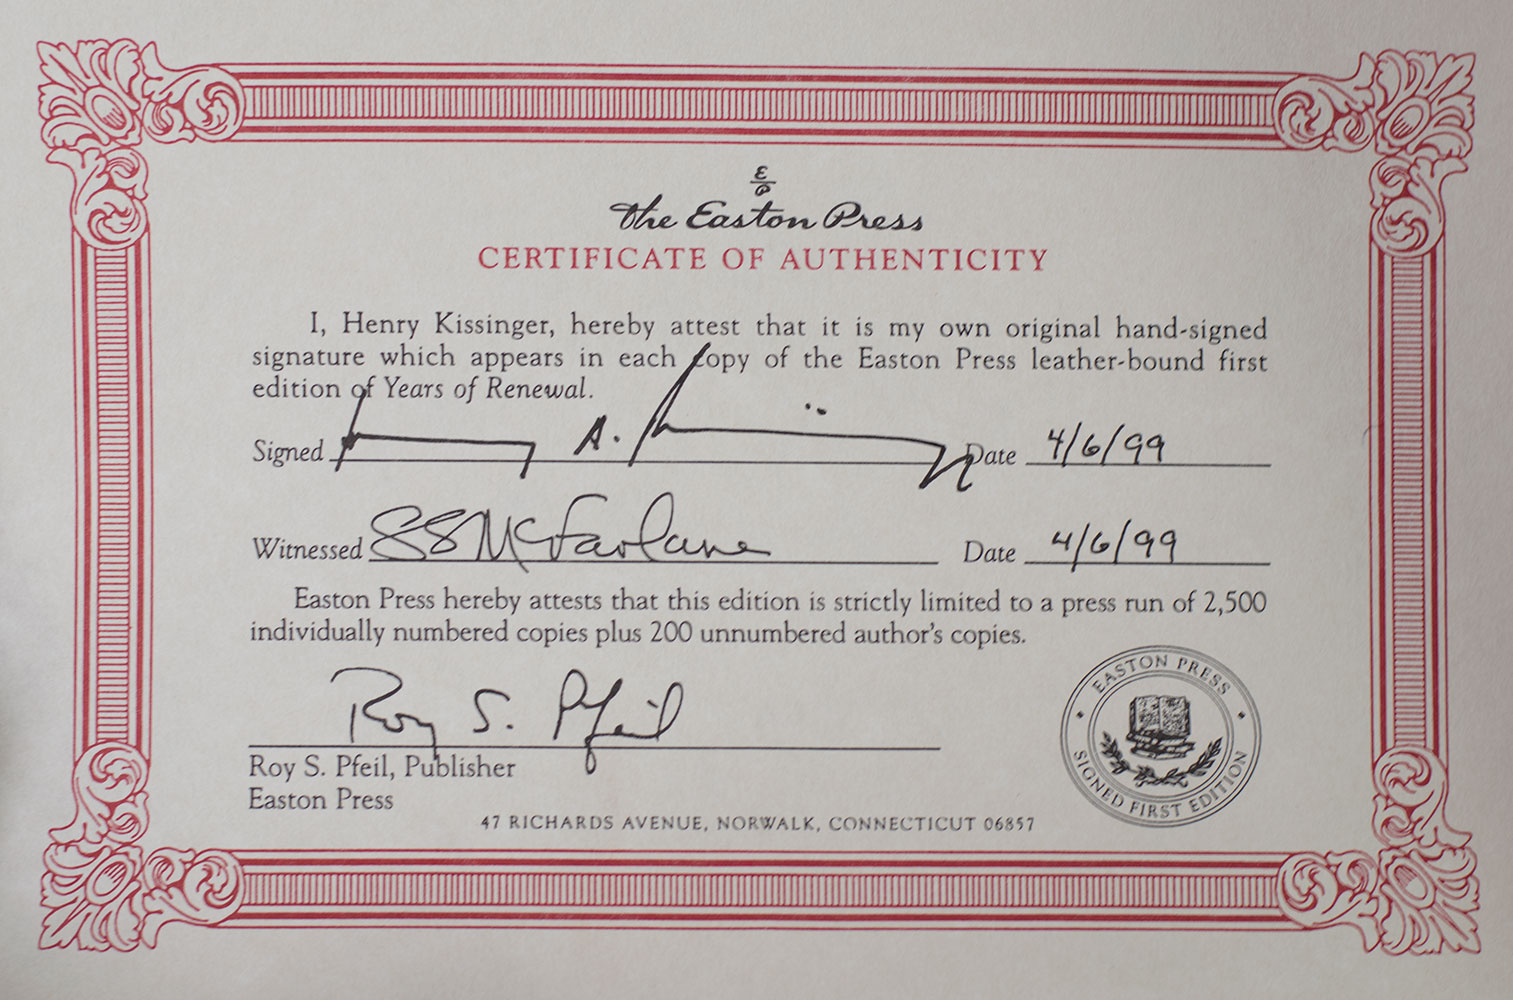 E
P
The Easton Press
CERTIFICATE OF AUTHENTICITY
I, Henry Kissinger, hereby attest that it is my own original hand-signed
signature which appears in each copy of the Easton Press leather-bound first
edition of Years of Renewal.
Signed Henry A. Kissinger Date 4/6/99
Witnessed SSMcFarlane Date 4/6/99
Easton Press hereby attests that this edition is strictly limited to a press run of 2,500
individually numbered copies plus 200 unnumbered author's copies.
Roy S. Pfeil
Roy S. Pfeil, Publisher
Easton Press
EASTON PRESS
SIGNED FIRST EDITION
47 RICHARDS AVENUE, NORWALK, CONNECTICUT 06857